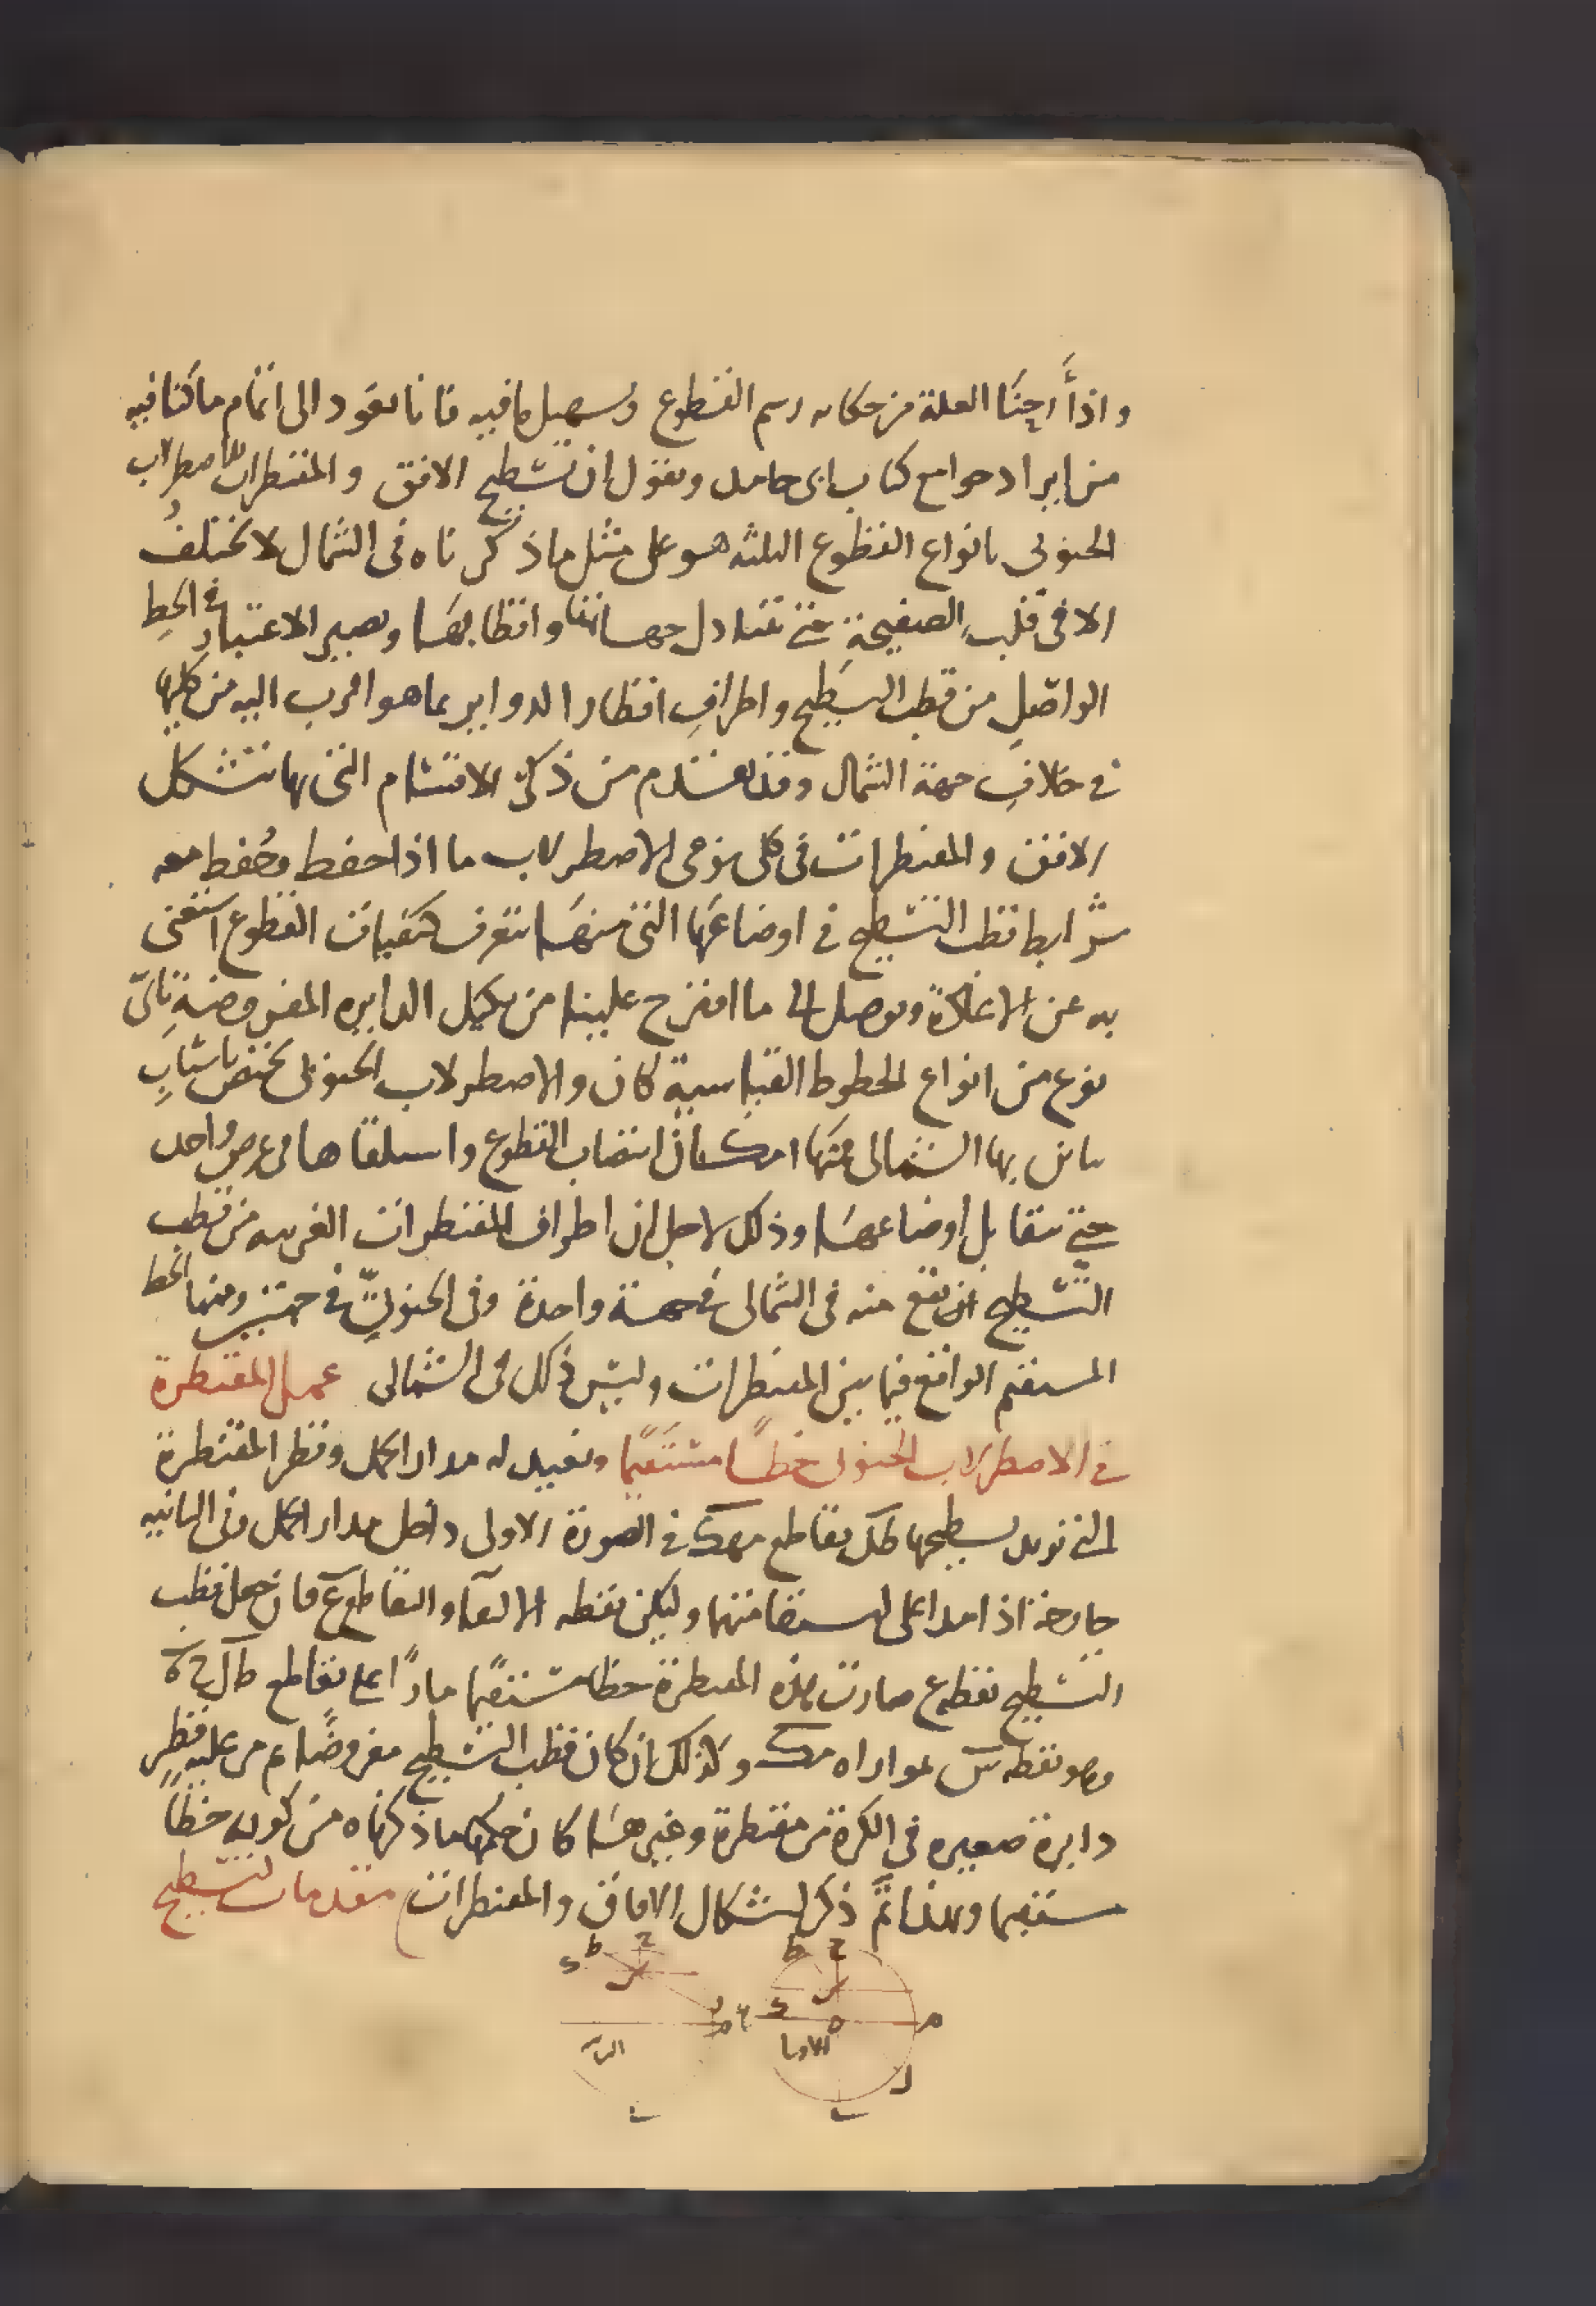 واذ أرحنا العلة من حكاىه رسم القطوع وتسهيل ما فيه فانا نعود الى اتمام ما كنا فيه
من ايراد جوامع كتاب ابى حامد ونقول ان تسطيح الافق والمقنطرات للاصطرلاب
الجنوبى بانواع القطوع الثلثه هو على مثل ما ذكرناه فى الشمال لا تختلف
الا فى قلب الصفيحة حتى تتبادل جهاتها واقطابها ويصير الاعتبار فى الخط
الواصل من قطب التسطيح واطراف اقطار الدواير بما هو اقرب اليه من كليهما
فى خلاف جهة الشمال وقد تقدم من ذكر الاقسام التى بها تتشكل
الافق والمقنطرات فى كل نوعى الاصطرلاب ما اذا حفظ وحفظ معه
شرايط قطب التسطيح فى اوضاعها التى منها تتعرف كيفيات القطوع استغنى
به عن الاعادة وتوصل الى ما اقترح علينا من تشكيل الدايره المفروضة باى
نوع من انواع الخطوط القياسية كان والاصطرلاب الجنوبى يختص باسباب
يباين بها الشمالى منها امكان انتصاب القطوع واستلقاها فى عرض واحد
حتى تتقابل اوضاعها وذلك لاجل ان اطراف المقنطرات القريبه من قطب
التسطيح ان يقع منه فى الشمالى فى جهة واحدة وفى الجنوبى فى جهتين ومنها الخط
المستقيم الواقع فيما بين المقنطرات وليس ذلك فى الشمالى عمل المقنطرة
فى الاصطرلاب الجنوبى خطا مستقيما ونعيد له مدار الحمل وقطر المقنطرة
التى نريد تسطيحها طل يقاطع مهك فى الصورة الاولى داخل مدار الحمل وفى الثانيه
خارجه اذا امدا على استقامتهما وليكن نقطه الالتقا والتقاطع ع فان جعل قطب
التسطيح نقطه ع صارت هذه المقنطرة خطا مستقيما مارا على تقاطع طل ح ه
وهو نقطه س لموازاه مك وكذلك ان كان قطب التسطيح مفروضا ع من عليه قطر
دايرة صغيره فى الكرة من مقنطرة وغيرها كان حكمها ما ذكرناه من كونه خطا
مستقيما وبهذا تم ذكر اشكال الافاق والمقنطرات مقدمات لتسطيح
ح ط ح ط
الاولى